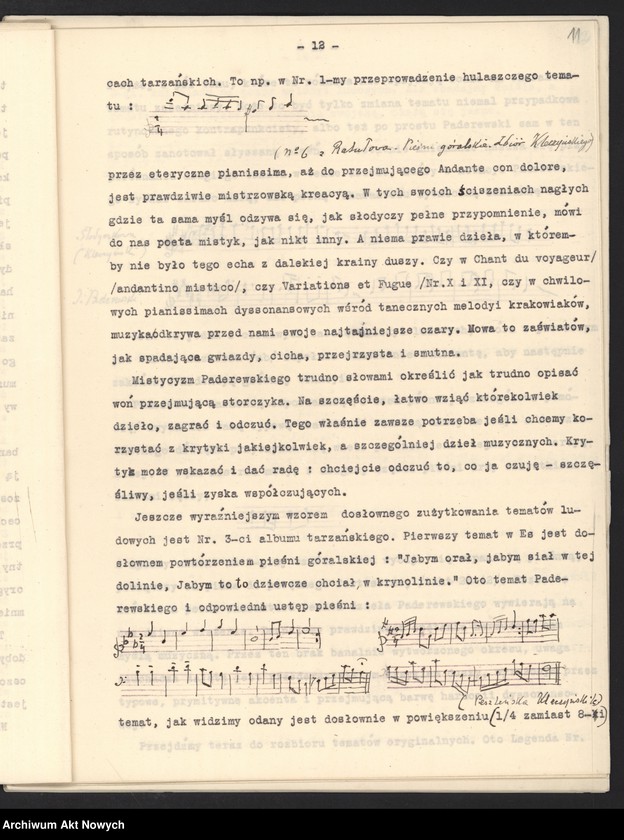 11
- 12 -
cach tarzańskich. To np. w Nr. 1-my przeprowadzenie hulaszczego tema-
tu :
(No 6 z Ratułowa - Pieśni góralskie. Zbiór Kleczyńskiego)
przez eteryczne pianissima, aż do przejmującego Andante con dolore,
jest prawdziwie mistrzowską kreacyą. W tych swoich ściszeniach nagłych
gdzie ta sama myśl odzywa się, jak słodyczy pełne przypomnienie, mówi
do nas poeta mistyk, jak nikt inny. A niema prawie dzieła, w którem-
by nie było tego echa z dalekiej krainy duszy. Czy w Chant du voyageur/
/andantino mistico/, czy Variations et Fugue /Nr.X i XI, czy w chwilo-
wych pianissimach dyssonansowych wśród tanecznych melodyi krakowiaków,
muzykaodkrywa przed nami swoje najtajniejsze czary. Mowa to zaświatów,
jak spadająca gwiazdy, cicha, przejrzysta i smutna.
Mistycyzm Paderewskiego trudno słowami określić jak trudno opisać
woń przejmującą storczyka. Na szczęście, łatwo wziąć którekolwiek
dzieło, zagrać i odczuć. Tego właśnie zawsze potrzeba jeśli chcemy ko-
rzystać z krytyki jakiejkolwiek, a szczególniej dzieł muzycznych. Kry-
tyk może wskazać i dać radę : chciejcie odczuć to, co ja czuję - szczę-
śliwy, jeśli zyska współczujących.
Jeszcze wyraźniejszym wzorem dosłownego zużytkowania tematów lu-
dowych jest Nr. 3-ci albumu tarzańskiego. Pierwszy temat w Es jest do-
słownem powtórzeniem pieśni góralskiej : "Jabym orał, jabym siał w tej
dolinie, Jabym to to dziewcze chciał w krynolinie." Oto temat Pade-
rewskiego i odpowiedni ustęp pieśni :
Kleczyński)
temat, jak widzimy odany jest dosłownie w powiększeniu (1/4 zamiast 8-ki)
Archiwum Akt Nowych